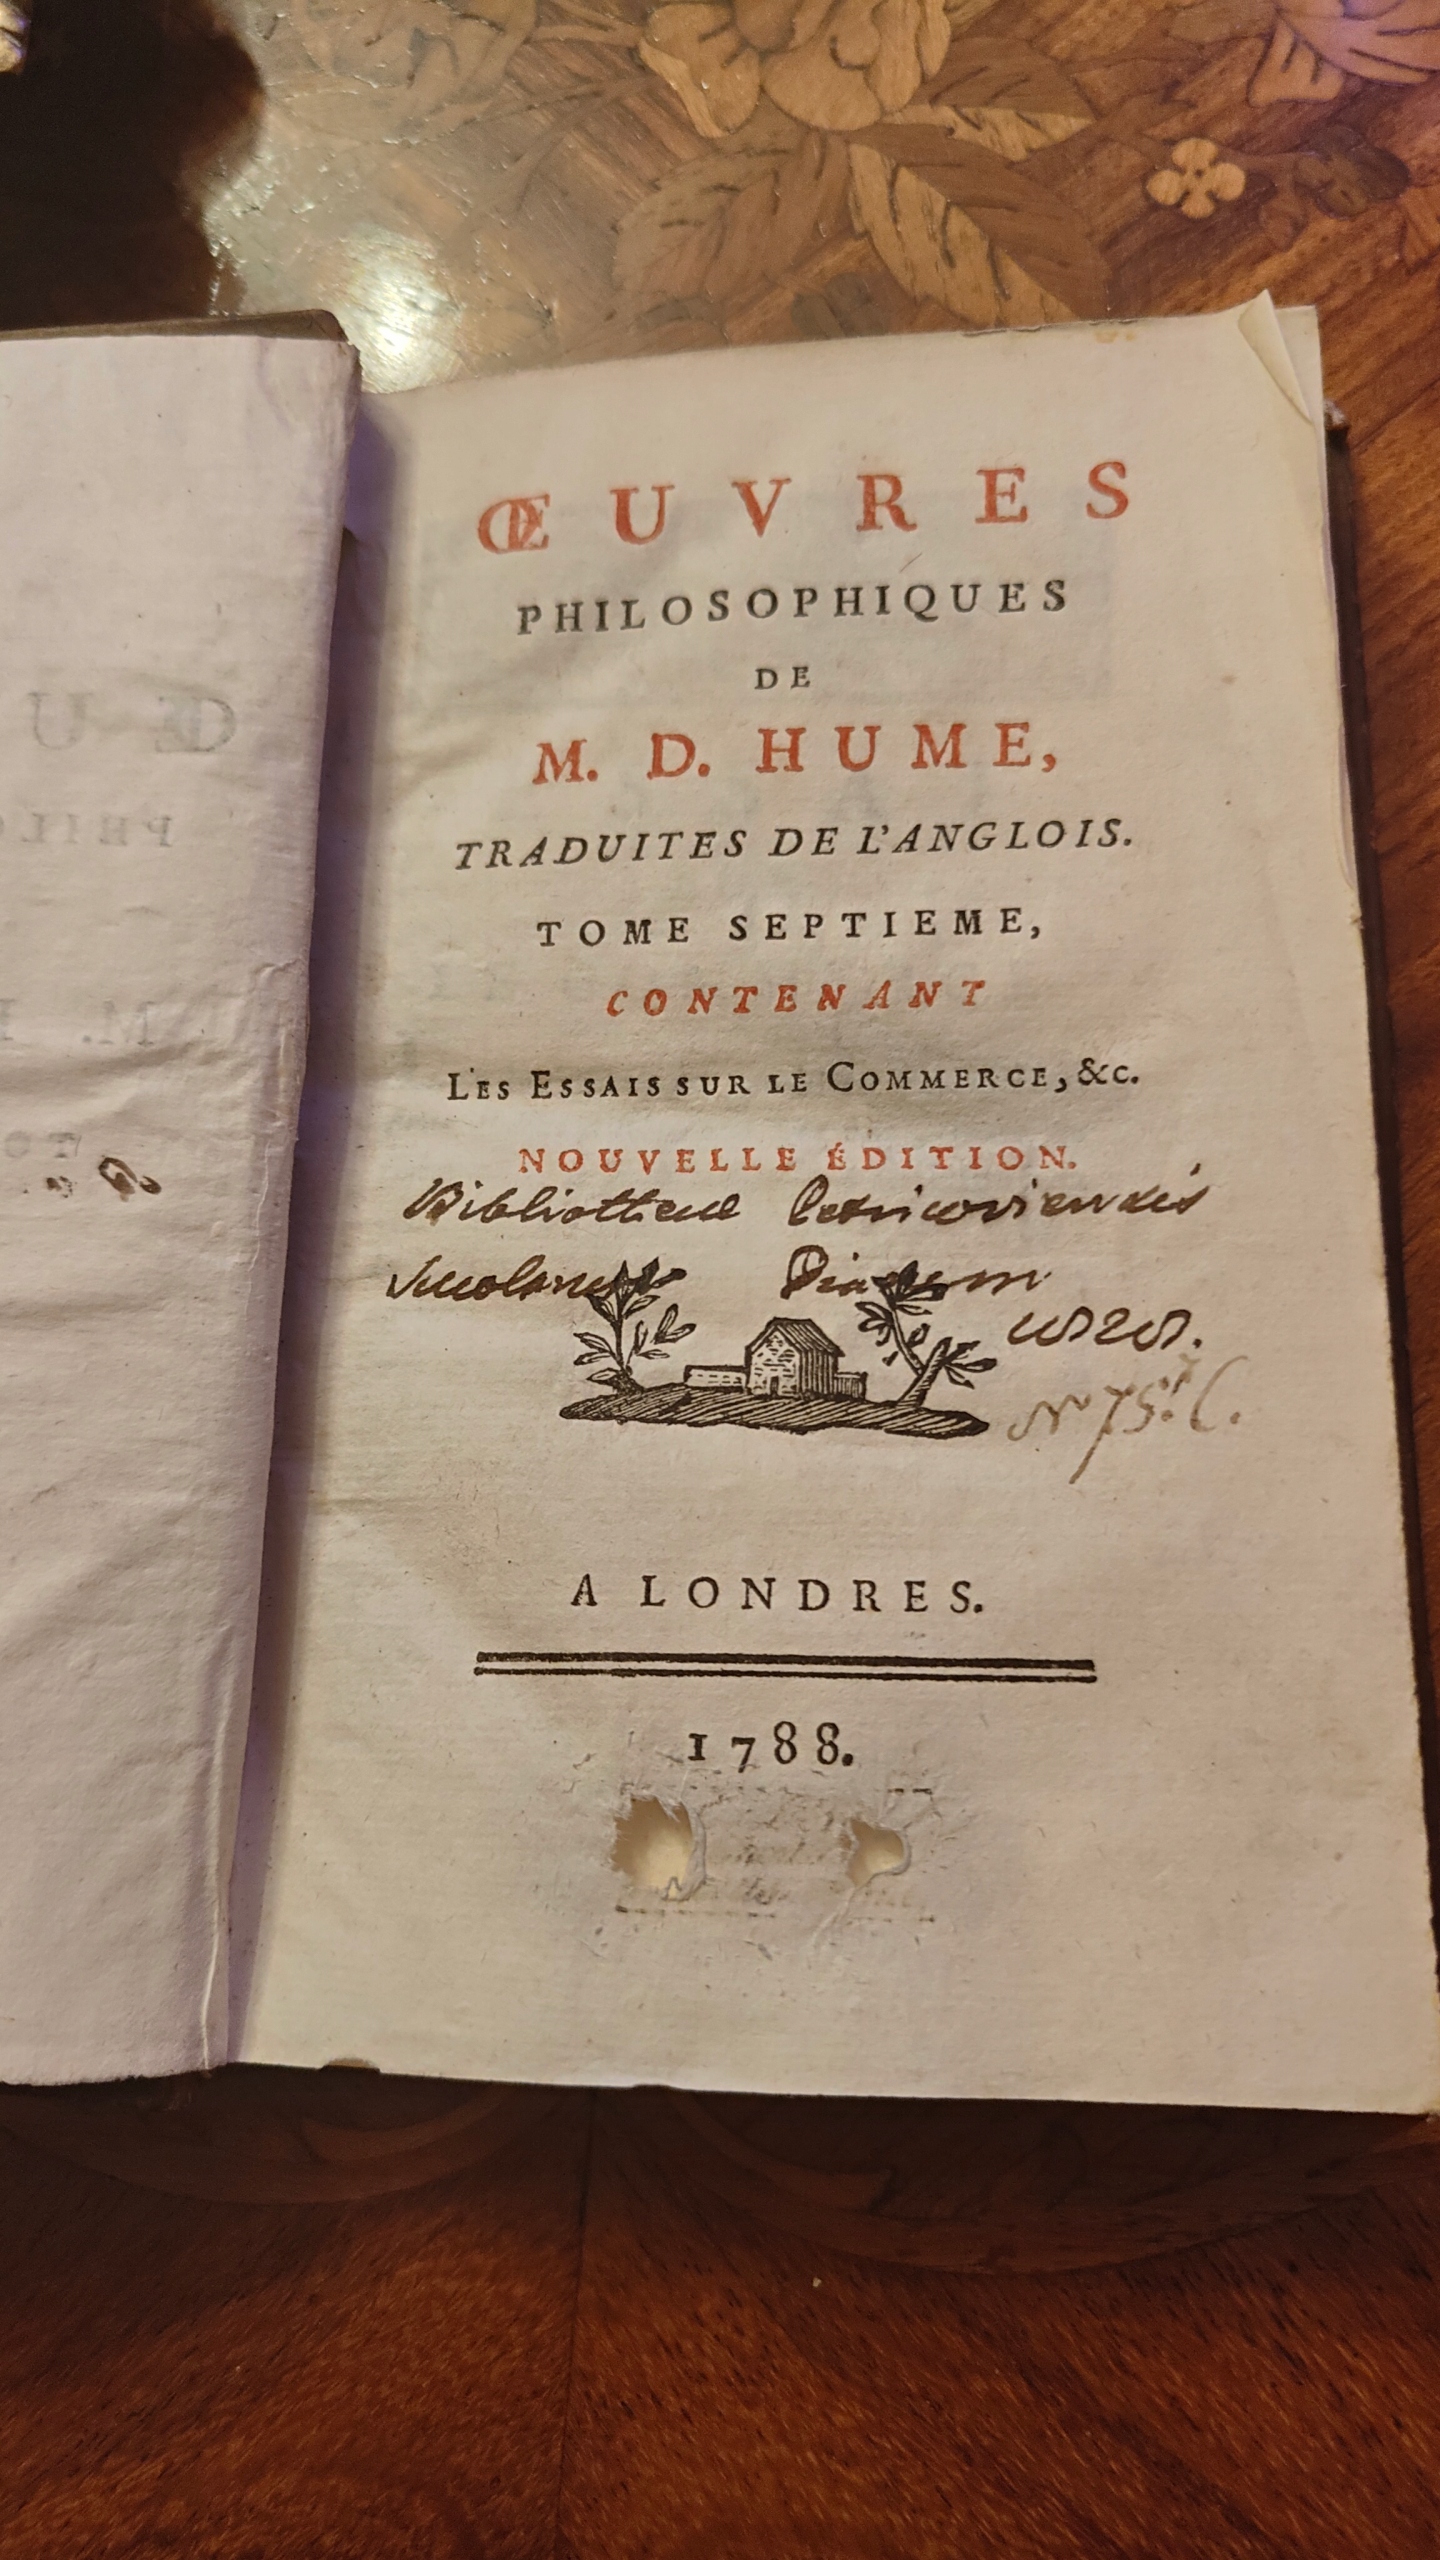 ŒUVRES
PHILOSOPHIQUES
DE
M. D. HUME,
TRADUITES DE L'ANGLOIS.
TOME SEPTIEME,
CONTENANT
LES ESSAIS SUR LE COMMERCE, &c.
NOUVELLE ÉDITION.
A LONDRES.
1788.